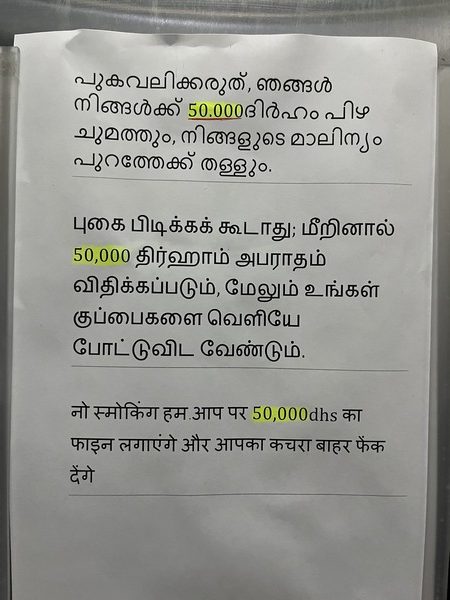 പുകവലിക്കരുത്, ഞങ്ങൾ
നിങ്ങൾക്ക് 50.000ദിർഹം പിഴ
ചുമത്തും, നിങ്ങളുടെ മാലിന്യം
പുറത്തേക്ക് തള്ളും.
புகை பிடிக்கக் கூடாது; மீறினால்
50,000 திர்ஹாம் அபராதம்
விதிக்கப்படும், மேலும் உங்கள்
குப்பைகளை வெளியே
போட்டுவிட வேண்டும்.
नो स्मोकिंग हम आप पर 50,000dhs का
फाइन लगाएंगे और आपका कचरा बाहर फेंक
देंगे